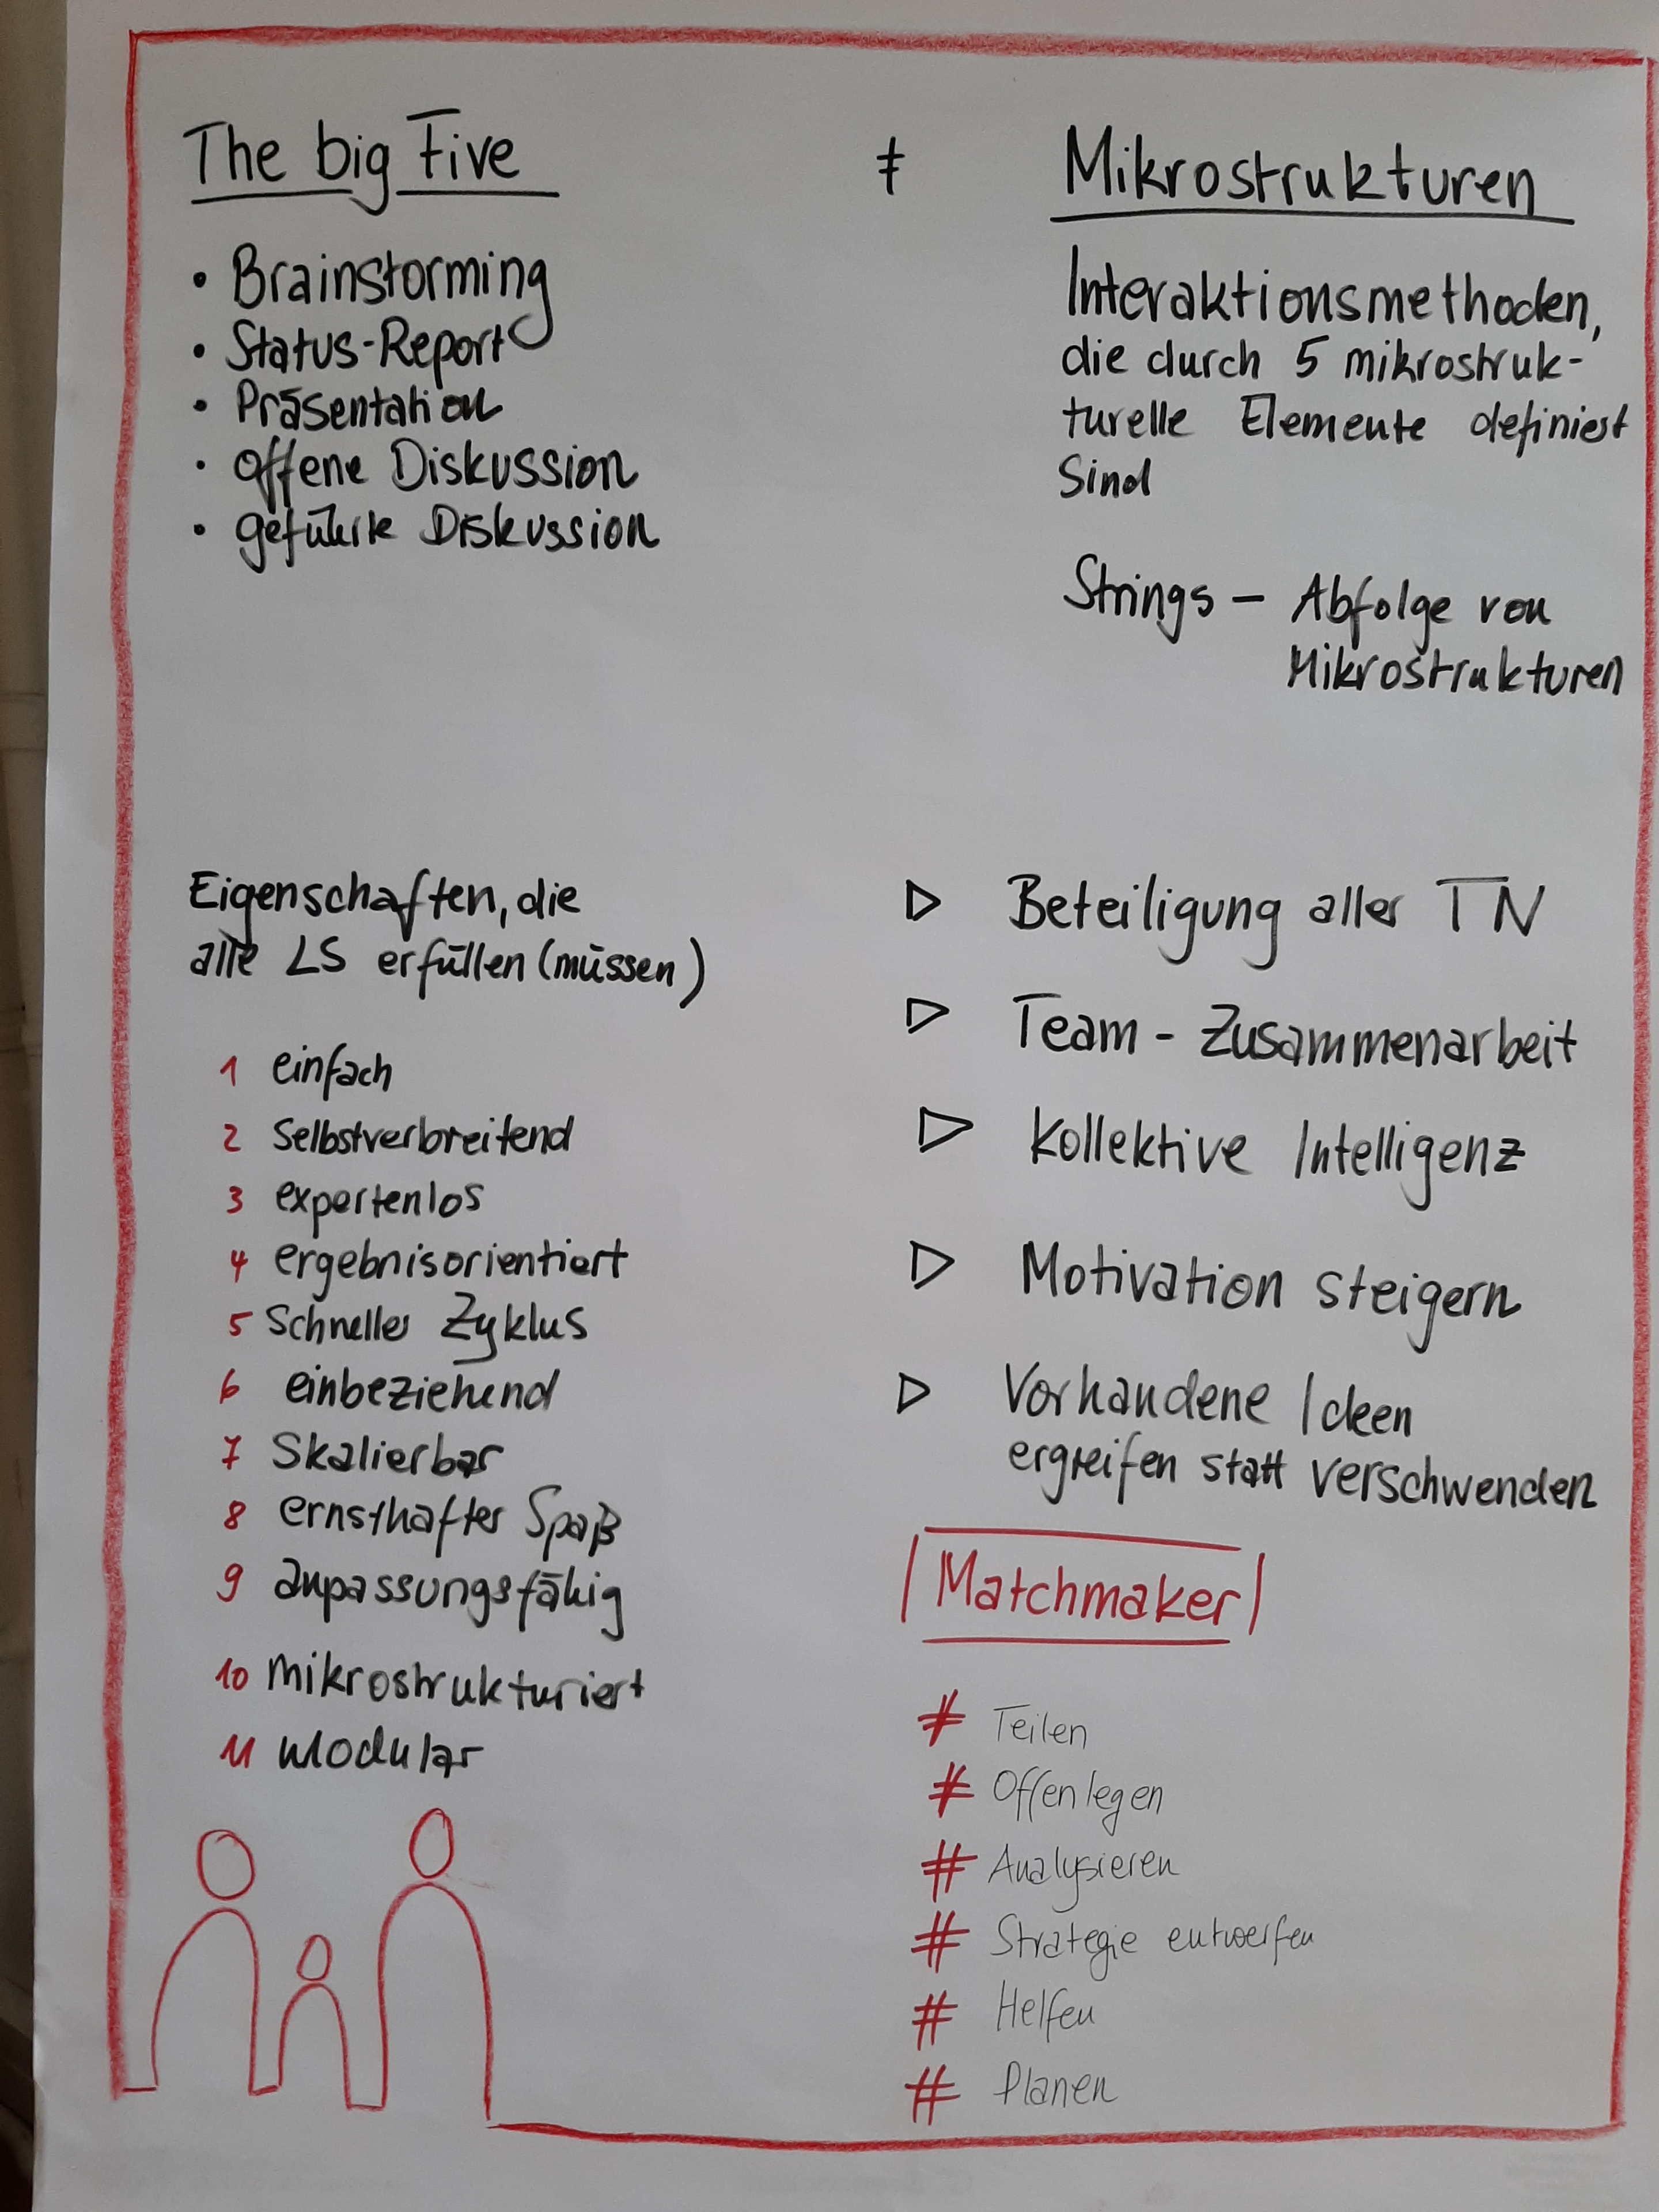 The big Five
≠
Mikrostrukturen
• Brainstorming
• Status-Report
• Präsentation
• offene Diskussion
• geführte Diskussion
Interaktionsmethoden,
die durch 5 mikrostruk-
turelle Elemente definiert
sind
Strings – Abfolge von
Mikrostrukturen
Eigenschaften, die
alle LS erfüllen (müssen)
1 einfach
2 selbstverbreitend
3 expertenlos
4 ergebnisorientiert
5 Schneller Zyklus
6 einbeziehend
7 Skalierbar
8 ernsthafter Spaß
9 anpassungsfähig
10 mikrostrukturiert
11 modular
▷ Beteiligung aller TN
▷ Team - Zusammenarbeit
▷ Kollektive Intelligenz
▷ Motivation steigern
▷ Vorhandene Ideen
ergreifen statt verschwenden
Matchmaker
# Teilen
# Offenlegen
# Analysieren
# Strategie entwerfen
# Helfen
# Planen